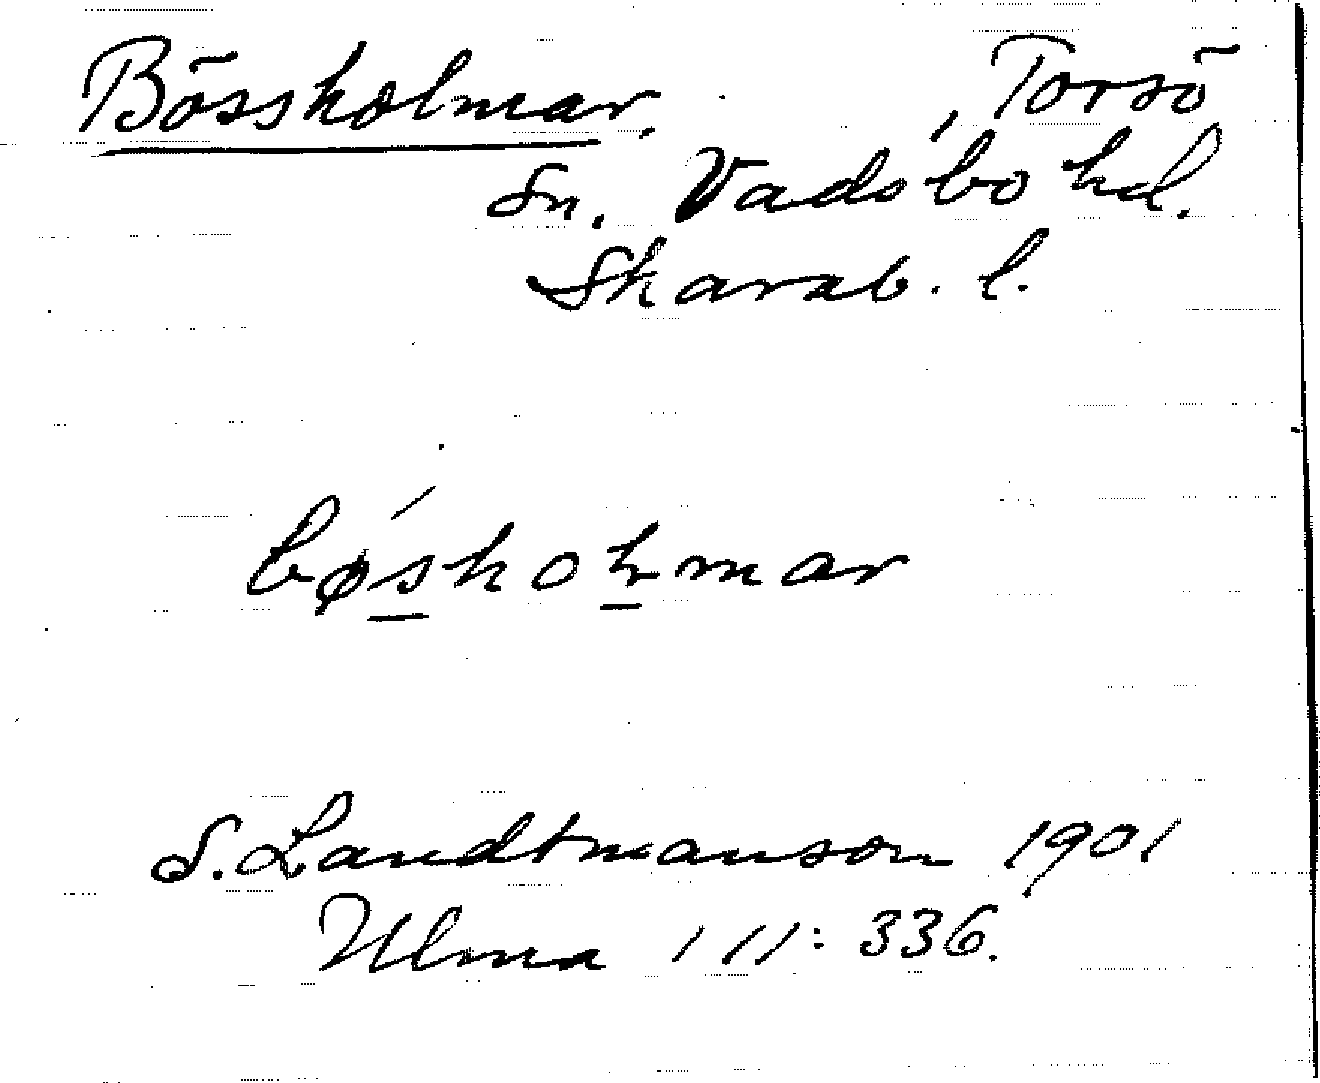 Bössholmar. , Torsö
Sn. Vadsbo hd.
Skarab. l.
bǿskoꞕmar
S. Landtmanson 1901
Ulma 111: 336.